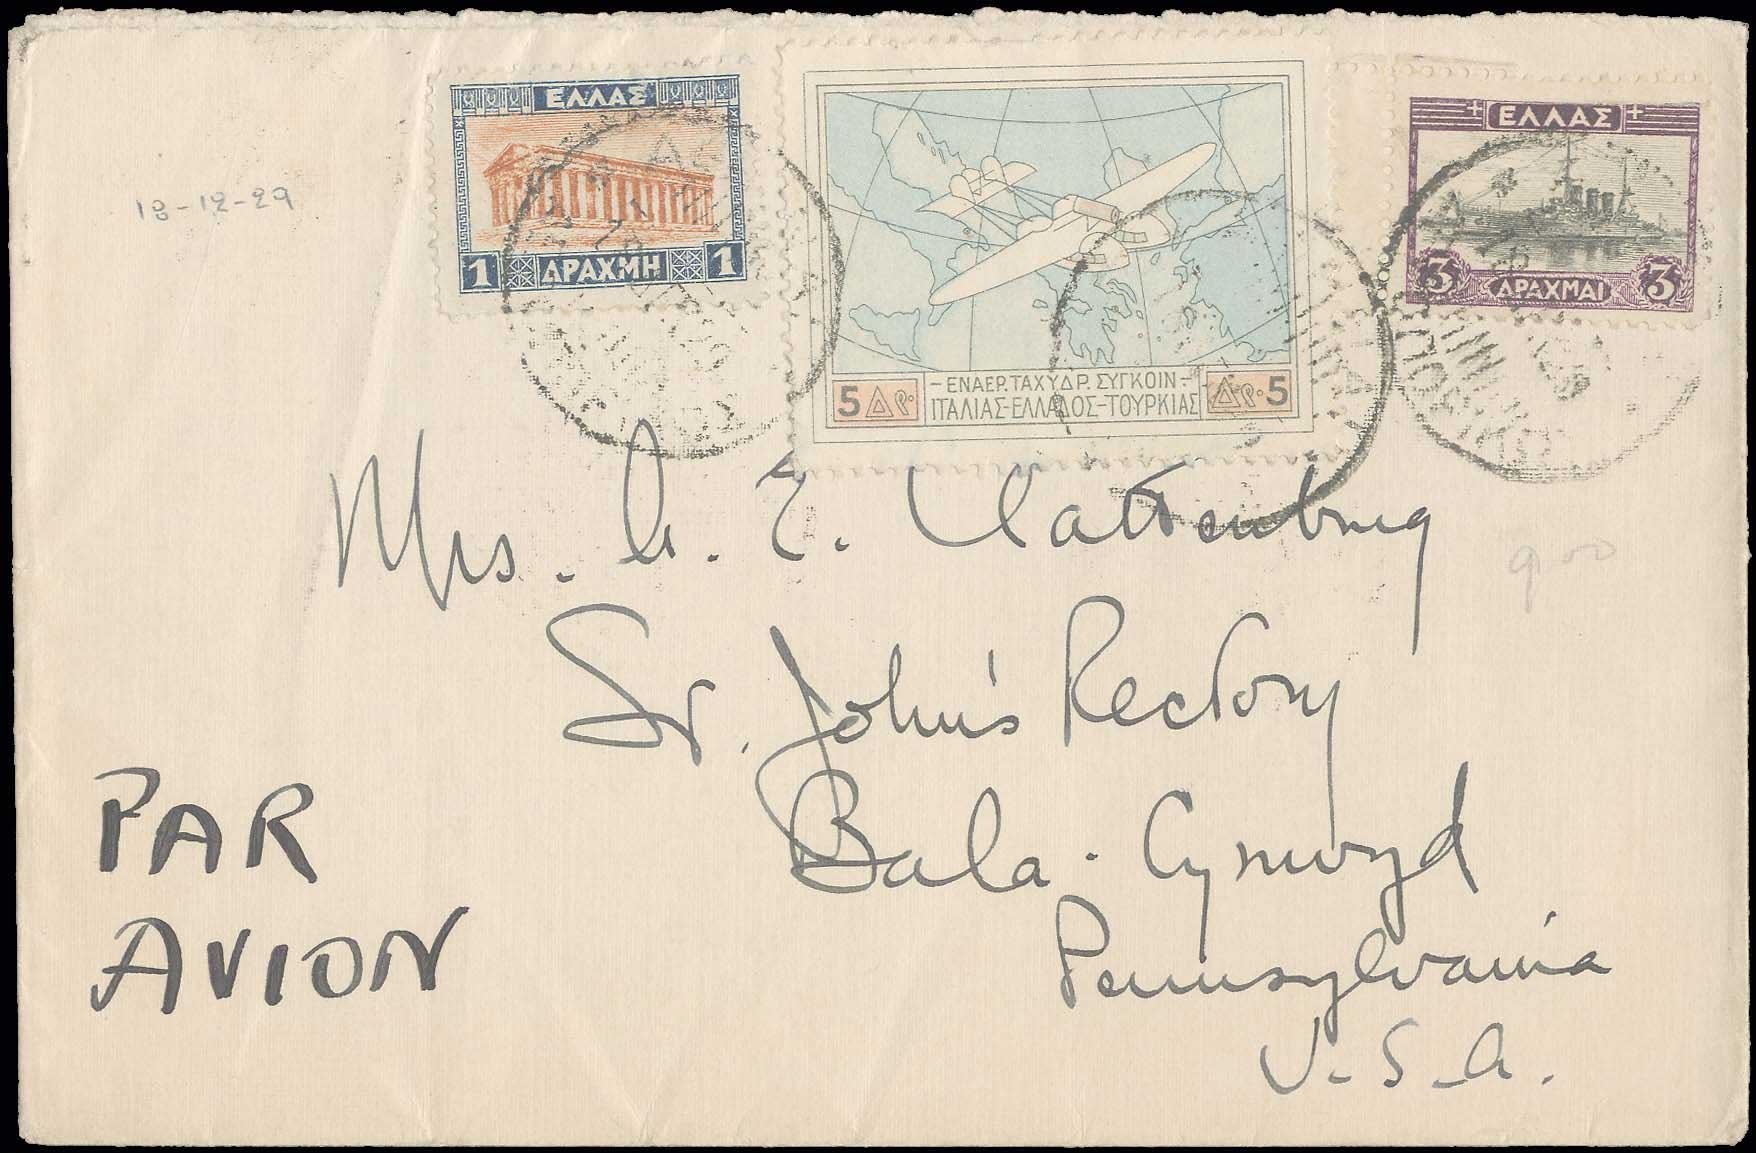 ΕΛΛΑΣ
1 ΔΡΑΧΜΗ 1
5 Δρ.
-ΕΝΑΕΡ. ΤΑΧΥΔΡ. ΣΥΓΚΟΙΝ-
ΙΤΑΛΙΑΣ-ΕΛΛΑΔΟΣ-ΤΟΥΡΚΙΑΣ
Δρ. 5
ΕΛΛΑΣ
3 ΔΡΑΧΜΑΙ 3
13-12-29
Mrs. E.
900
St. John's Rectory
Bala-Cynwyd
Pennsylvania
U.S.A.
PAR
AVION